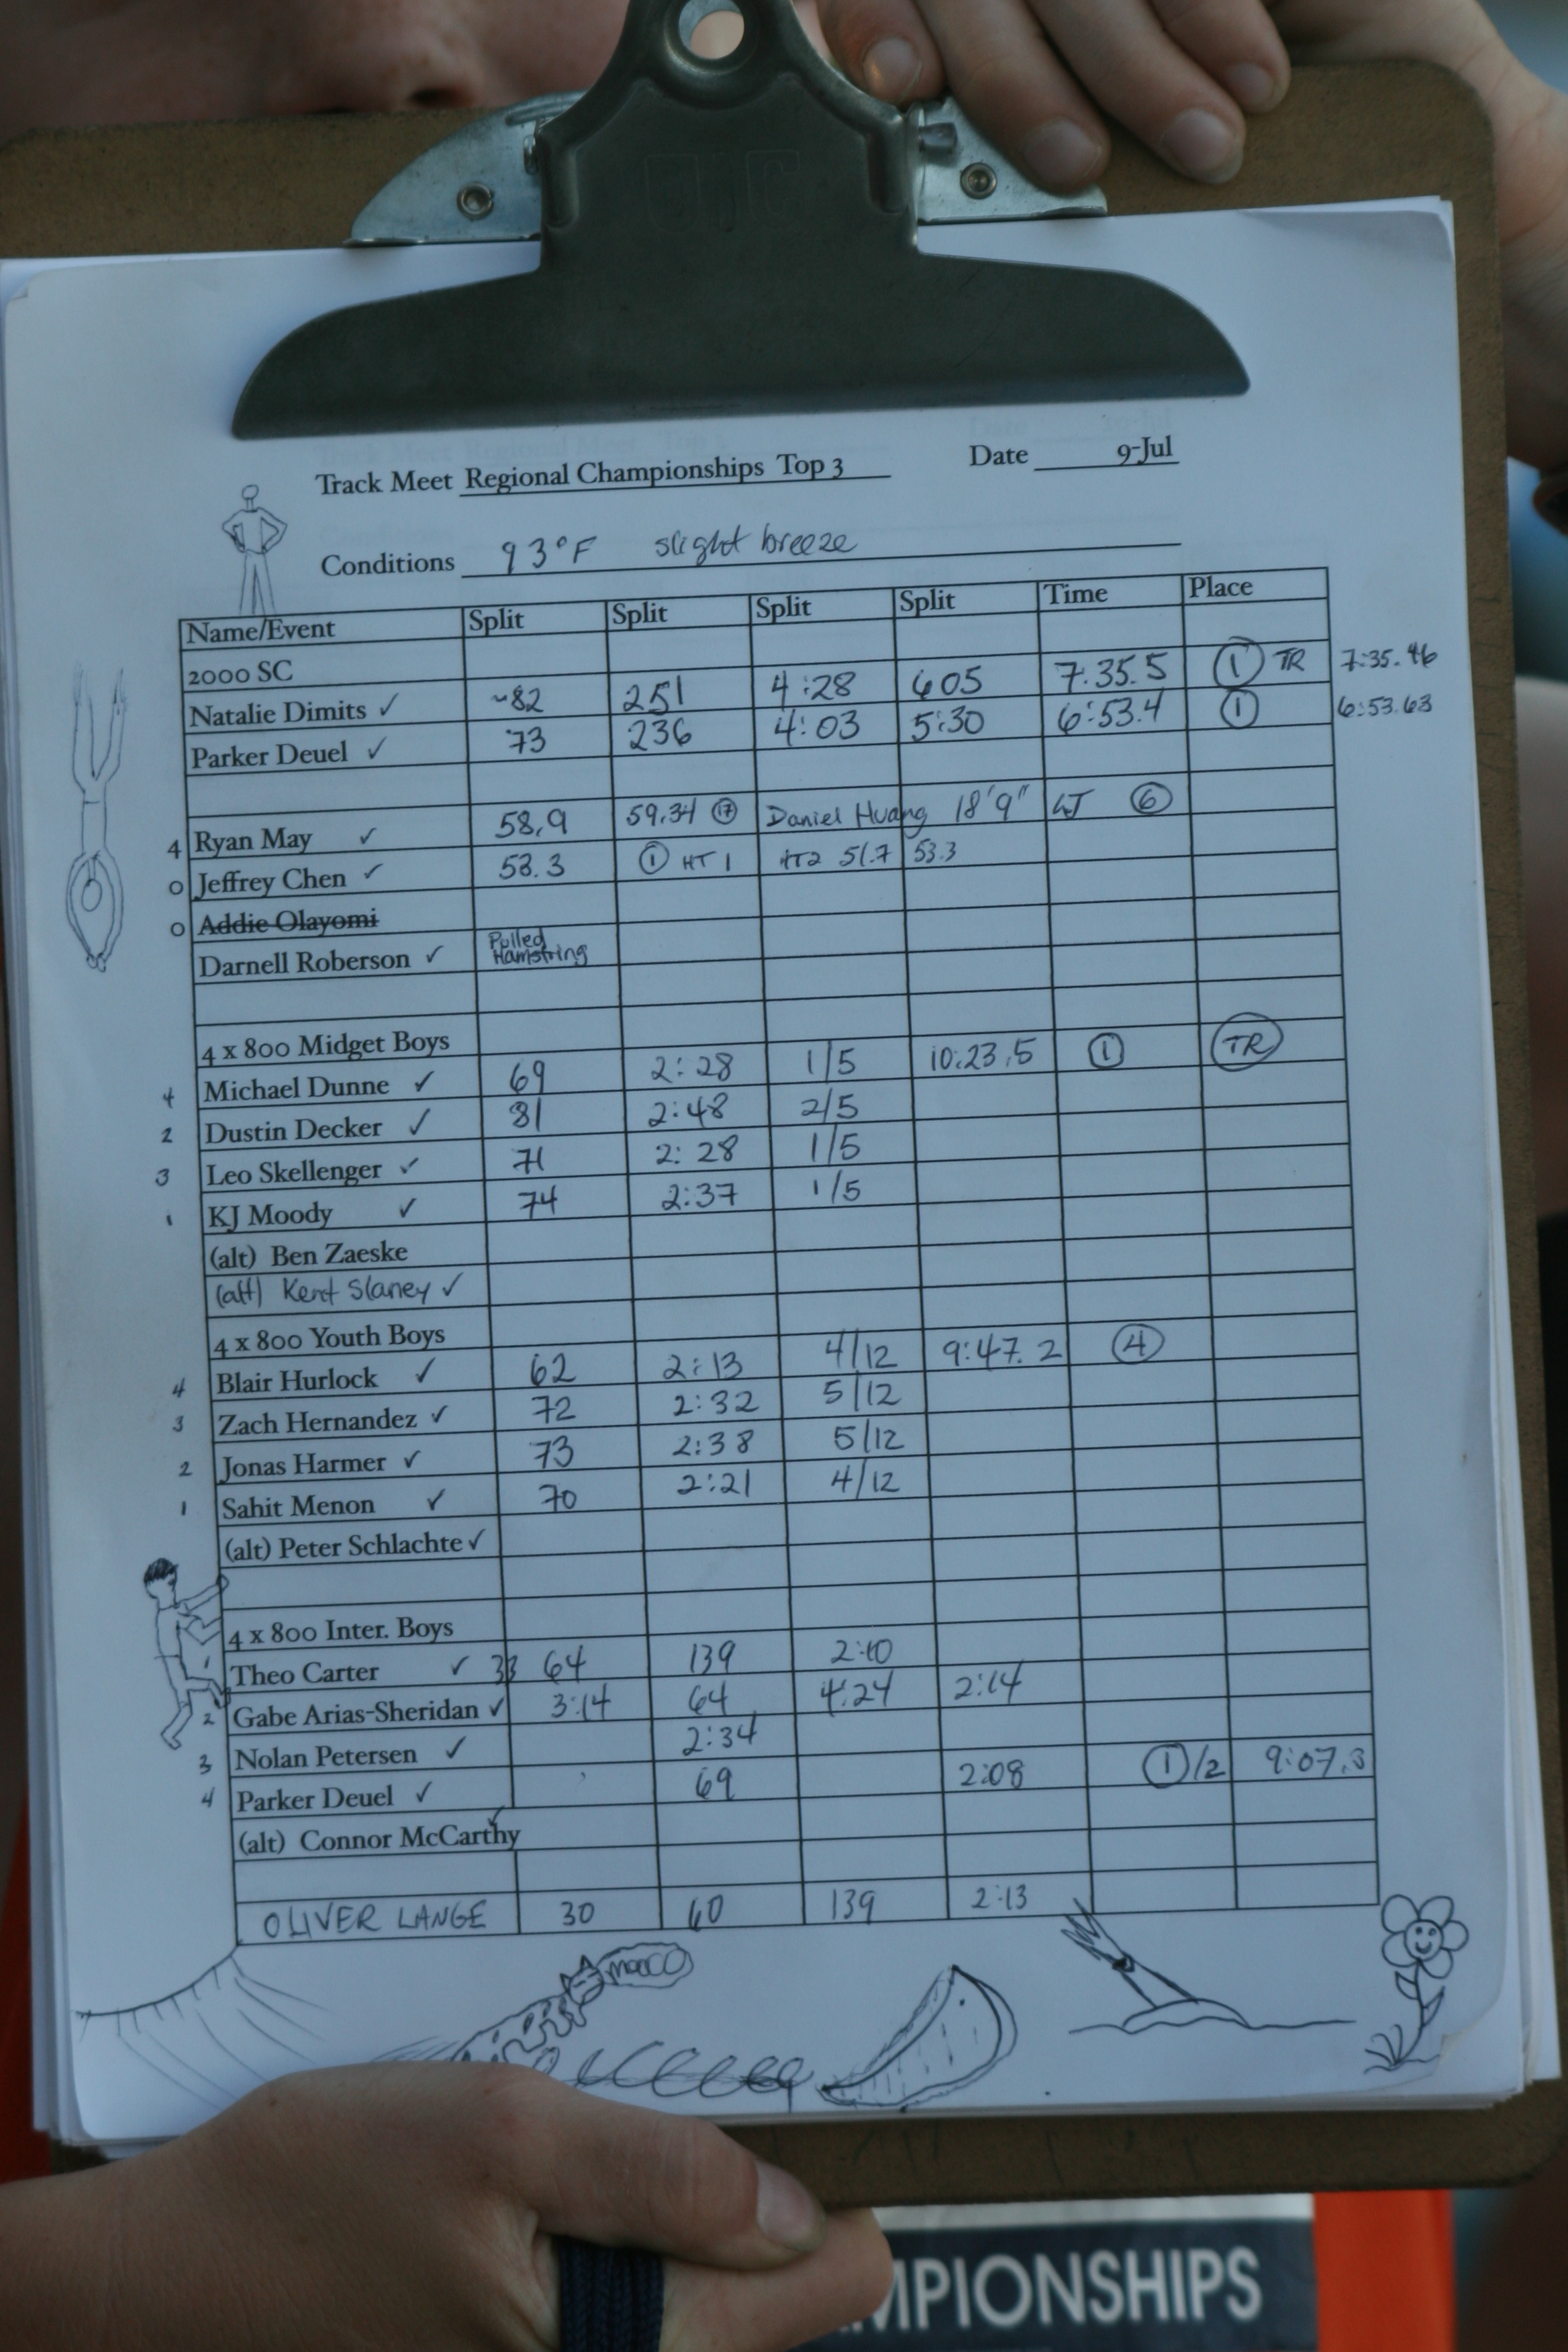 Track Meet Regional Championships Top 3 Date 9-Jul
Conditions 93°F slight breeze
Name/Event Split Split Split Split Time Place
2000 SC
Natalie Dimits ✓ ~82 251 4:28 605 7:35.5 1 TR 7:35.46
Parker Deuel ✓ 73 236 4:03 5:30 6:53.4 1 6:53.63
4 Ryan May ✓ 58.9 59.34 17 Daniel Huang 18'9" LJ 6
0 Jeffrey Chen ✓ 53.3 1 HT 1 HT2 51.7 53.3
0 Addie Olayomi
Darnell Roberson ✓ Pulled Hamstring
4 x 800 Midget Boys
4 Michael Dunne ✓ 69 2:28 1/5 10:23.5 1 TR
2 Dustin Decker ✓ 81 2:48 2/5
3 Leo Skellenger ✓ 71 2:28 1/5
1 KJ Moody ✓ 74 2:37 1/5
(alt) Ben Zaeske
(alt) Kent Slaney ✓
4 x 800 Youth Boys
4 Blair Hurlock ✓ 62 2:13 4/12 9:47.2 4
3 Zach Hernandez ✓ 72 2:32 5/12
2 Jonas Harmer ✓ 73 2:38 5/12
1 Sahit Menon ✓ 70 2:21 4/12
(alt) Peter Schlachte ✓
4 x 800 Inter. Boys
1 Theo Carter ✓ 33 64 139 2:10
2 Gabe Arias-Sheridan ✓ 3:14 64 4:24 2:14
3 Nolan Petersen ✓ 2:34
4 Parker Deuel ✓ 69 2:08 1/2 9:07.3
(alt) Connor McCarthy ✓
OLIVER LANGE 30 60 139 2:13
mooo
MPIONSHIPS